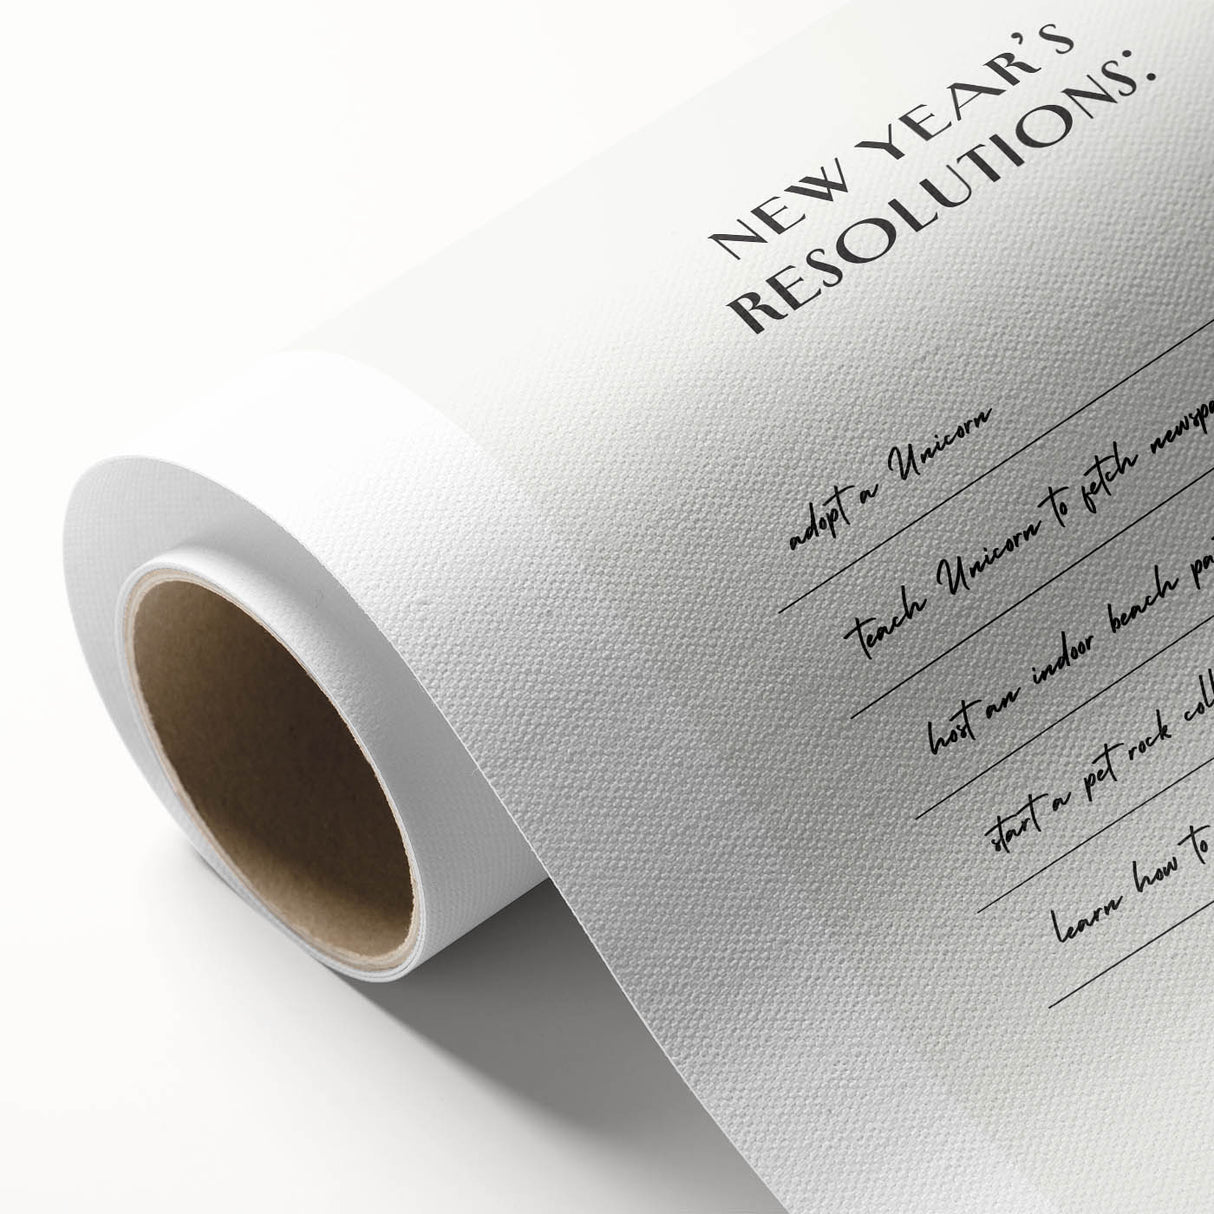 NEW YEAR'S
RESOLUTIONS:
adopt a Unicorn
teach Unicorn to fetch
host an indoor beach
start a pet rock
learn how to